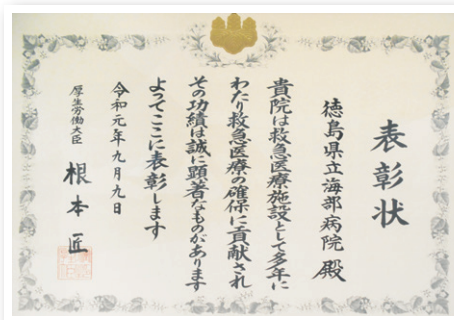 表彰状
徳島県立海部病院 殿
貴院は救急医療施設として多年に
わたり救急医療の確保に貢献され
その功績は誠に顕著なものがあります
よってここに表彰します
令和元年九月九日
厚生労働大臣 根本 匠